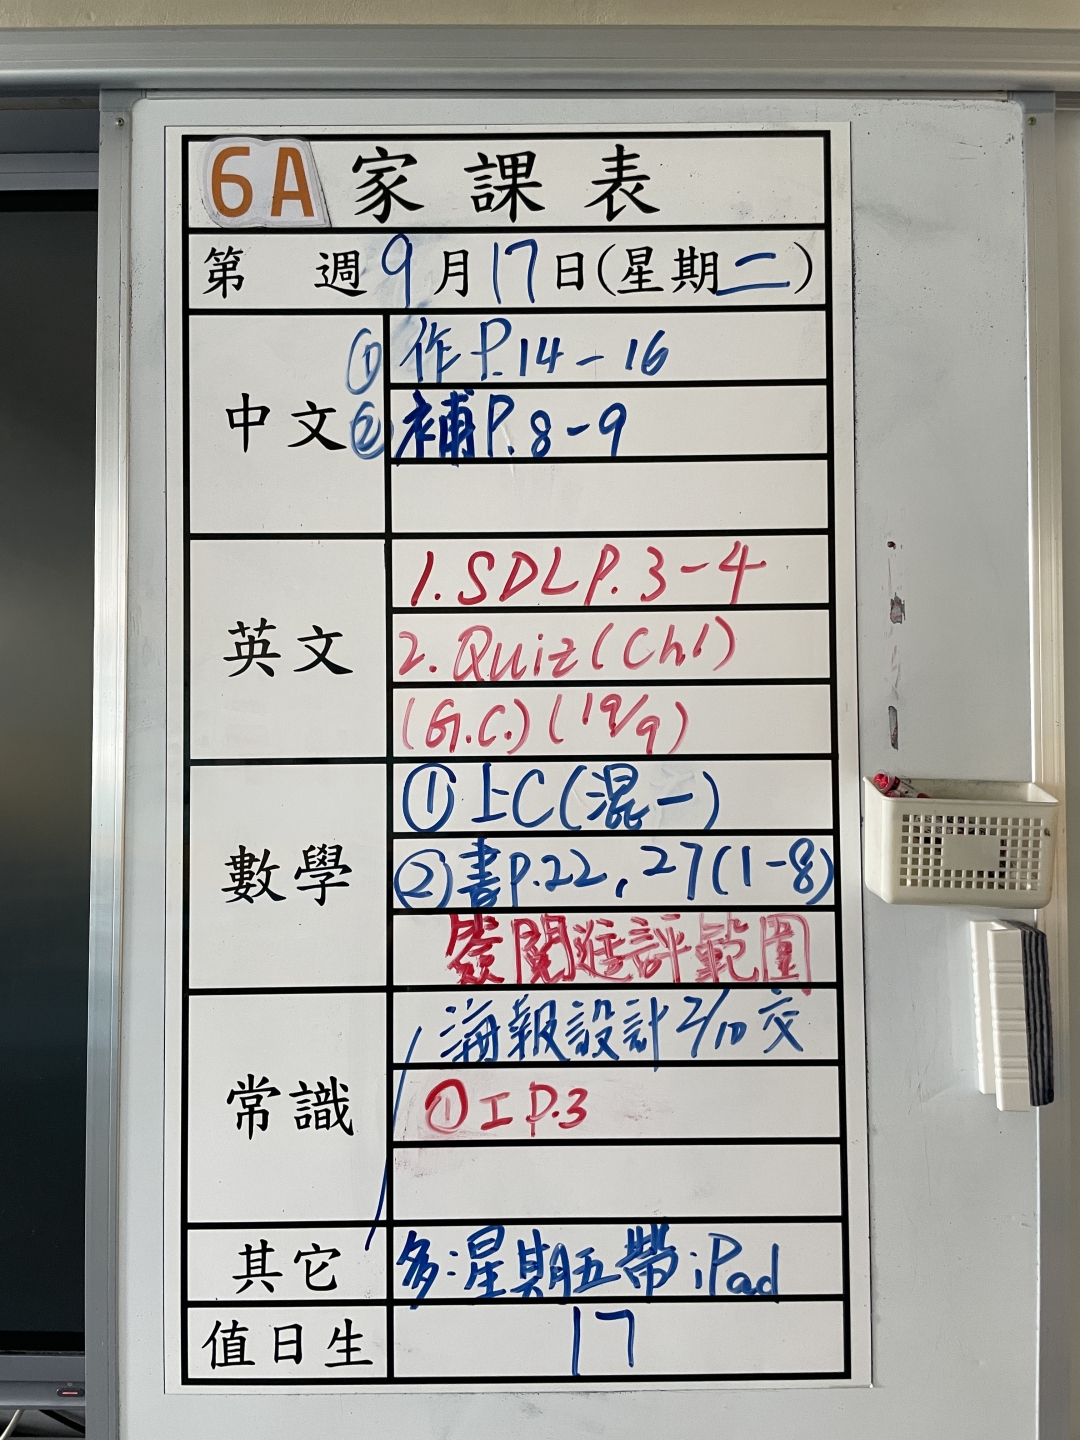 6A 家課表
第 週 9月17日(星期二)
中文
① 作 P.14-16
② 補 P.8-9
英文
1. SDL P.3-4
2. Quiz (Ch1)
(G.C.) (19/9)
數學
① 上C(混一)
② 書 P.22, 27(1-8)
簽閱進評範圍
常識
海報設計 2/10 交
① 工 P.3
其它
多:星期五帶 iPad
值日生
17